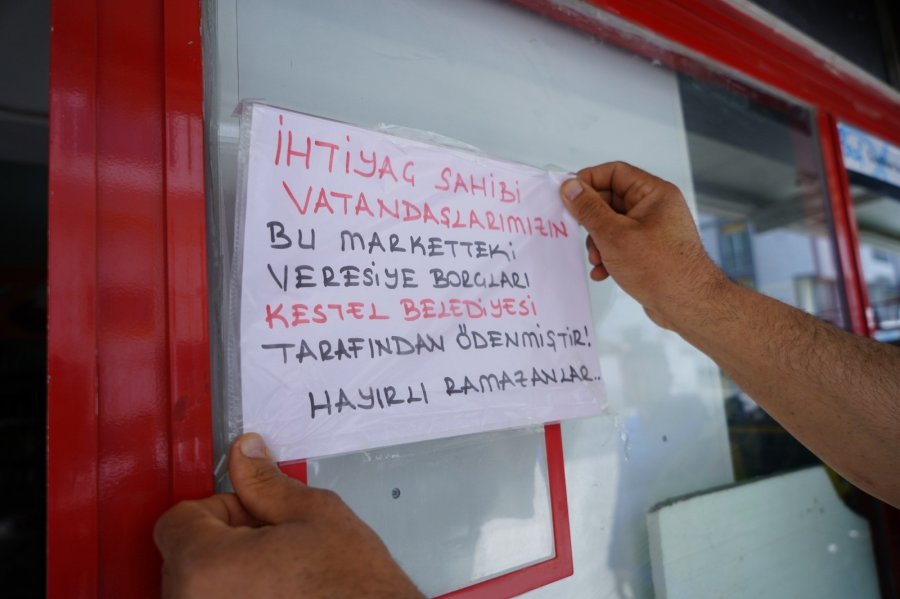 İHTİYAÇ SAHİBİ
VATANDAŞLARIMIZIN
BU MARKETTEKİ
VERESİYE BORÇLARI
KESTEL BELEDİYESİ
TARAFINDAN ÖDENMİŞTİR!
HAYIRLI RAMAZANLAR..